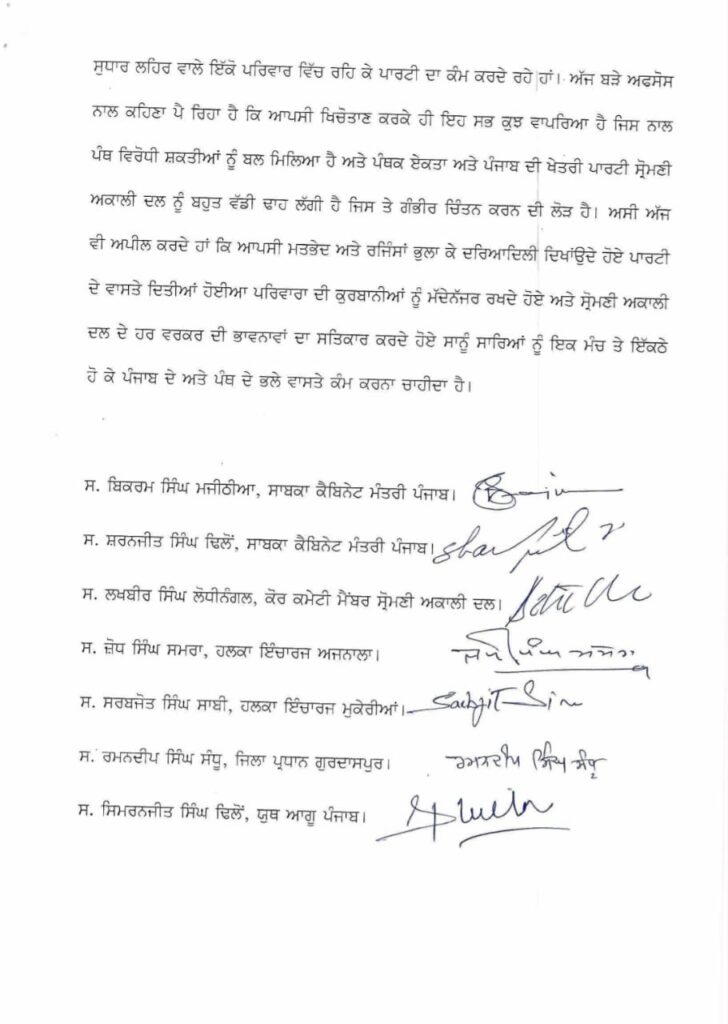 ਸੁਧਾਰ ਲਹਿਰ ਵਾਲੇ ਇੱਕੋ ਪਰਿਵਾਰ ਵਿੱਚ ਰਹਿ ਕੇ ਪਾਰਟੀ ਦਾ ਕੰਮ ਕਰਦੇ ਰਹੇ ਹਾਂ। ਅੱਜ ਬੜੇ ਅਫਸੋਸ
ਨਾਲ ਕਹਿਣਾ ਪੈ ਰਿਹਾ ਹੈ ਕਿ ਆਪਸੀ ਖਿਚੋਤਾਣ ਕਰਕੇ ਹੀ ਇਹ ਸਭ ਕੁਝ ਵਾਪਰਿਆ ਹੈ ਜਿਸ ਨਾਲ
ਪੰਥ ਵਿਰੋਧੀ ਸ਼ਕਤੀਆਂ ਨੂੰ ਬਲ ਮਿਲਿਆ ਹੈ ਅਤੇ ਪੰਥਕ ਏਕਤਾ ਅਤੇ ਪੰਜਾਬ ਦੀ ਖੇਤਰੀ ਪਾਰਟੀ ਸ੍ਰੋਮਣੀ
ਅਕਾਲੀ ਦਲ ਨੂੰ ਬਹੁਤ ਵੱਡੀ ਢਾਹ ਲੱਗੀ ਹੈ ਜਿਸ ਤੇ ਗੰਭੀਰ ਚਿੰਤਨ ਕਰਨ ਦੀ ਲੋੜ ਹੈ। ਅਸੀ ਅੱਜ
ਵੀ ਅਪੀਲ ਕਰਦੇ ਹਾਂ ਕਿ ਆਪਸੀ ਮਤਭੇਦ ਅਤੇ ਰਜਿੰਸਾਂ ਭੁਲਾ ਕੇ ਦਰਿਆਦਿਲੀ ਦਿਖਾਂਉਦੇ ਹੋਏ ਪਾਰਟੀ
ਦੇ ਵਾਸਤੇ ਦਿਤੀਆਂ ਹੋਈਆ ਪਰਿਵਾਰਾ ਦੀ ਕੁਰਬਾਨੀਆਂ ਨੂੰ ਮੱਦੇਨੱਜਰ ਰਖਦੇ ਹੋਏ ਅਤੇ ਸ੍ਰੋਮਣੀ ਅਕਾਲੀ
ਦਲ ਦੇ ਹਰ ਵਰਕਰ ਦੀ ਭਾਵਨਾਵਾਂ ਦਾ ਸਤਿਕਾਰ ਕਰਦੇ ਹੋਏ ਸਾਨੂੰ ਸਾਰਿਆਂ ਨੂੰ ਇਕ ਮੰਚ ਤੇ ਇੱਕਠੇ
ਹੋ ਕੇ ਪੰਜਾਬ ਦੇ ਅਤੇ ਪੰਥ ਦੇ ਭਲੇ ਵਾਸਤੇ ਕੰਮ ਕਰਨਾ ਚਾਹੀਦਾ ਹੈ।
ਸ. ਬਿਕਰਮ ਸਿੰਘ ਮਜੀਠੀਆ, ਸਾਬਕਾ ਕੈਬਿਨੇਟ ਮੰਤਰੀ ਪੰਜਾਬ।
ਸ. ਸ਼ਰਨਜੀਤ ਸਿੰਘ ਢਿਲੋਂ, ਸਾਬਕਾ ਕੈਬਿਨੇਟ ਮੰਤਰੀ ਪੰਜਾਬ।
ਸ. ਲਖਬੀਰ ਸਿੰਘ ਲੋਧੀਨੰਗਲ, ਕੋਰ ਕਮੇਟੀ ਮੈਂਬਰ ਸ੍ਰੋਮਣੀ ਅਕਾਲੀ ਦਲ।
ਸ. ਜ਼ੋਧ ਸਿੰਘ ਸਮਰਾ, ਹਲਕਾ ਇੰਚਾਰਜ ਅਜਨਾਲਾ।
ਸ. ਸਰਬਜੋਤ ਸਿੰਘ ਸਾਬੀ, ਹਲਕਾ ਇੰਚਾਰਜ ਮੁਕੇਰੀਆਂ।
ਸ. ਰਮਨਦੀਪ ਸਿੰਘ ਸੰਧੂ, ਜਿਲਾ ਪ੍ਰਧਾਨ ਗੁਰਦਾਸਪੁਰ। ਰਮਨਦੀਪ ਸਿੰਘ ਸੰਧੂ
ਸ. ਸਿਮਰਨਜੀਤ ਸਿੰਘ ਢਿਲੋਂ, ਯੁਥ ਆਗੂ ਪੰਜਾਬ।